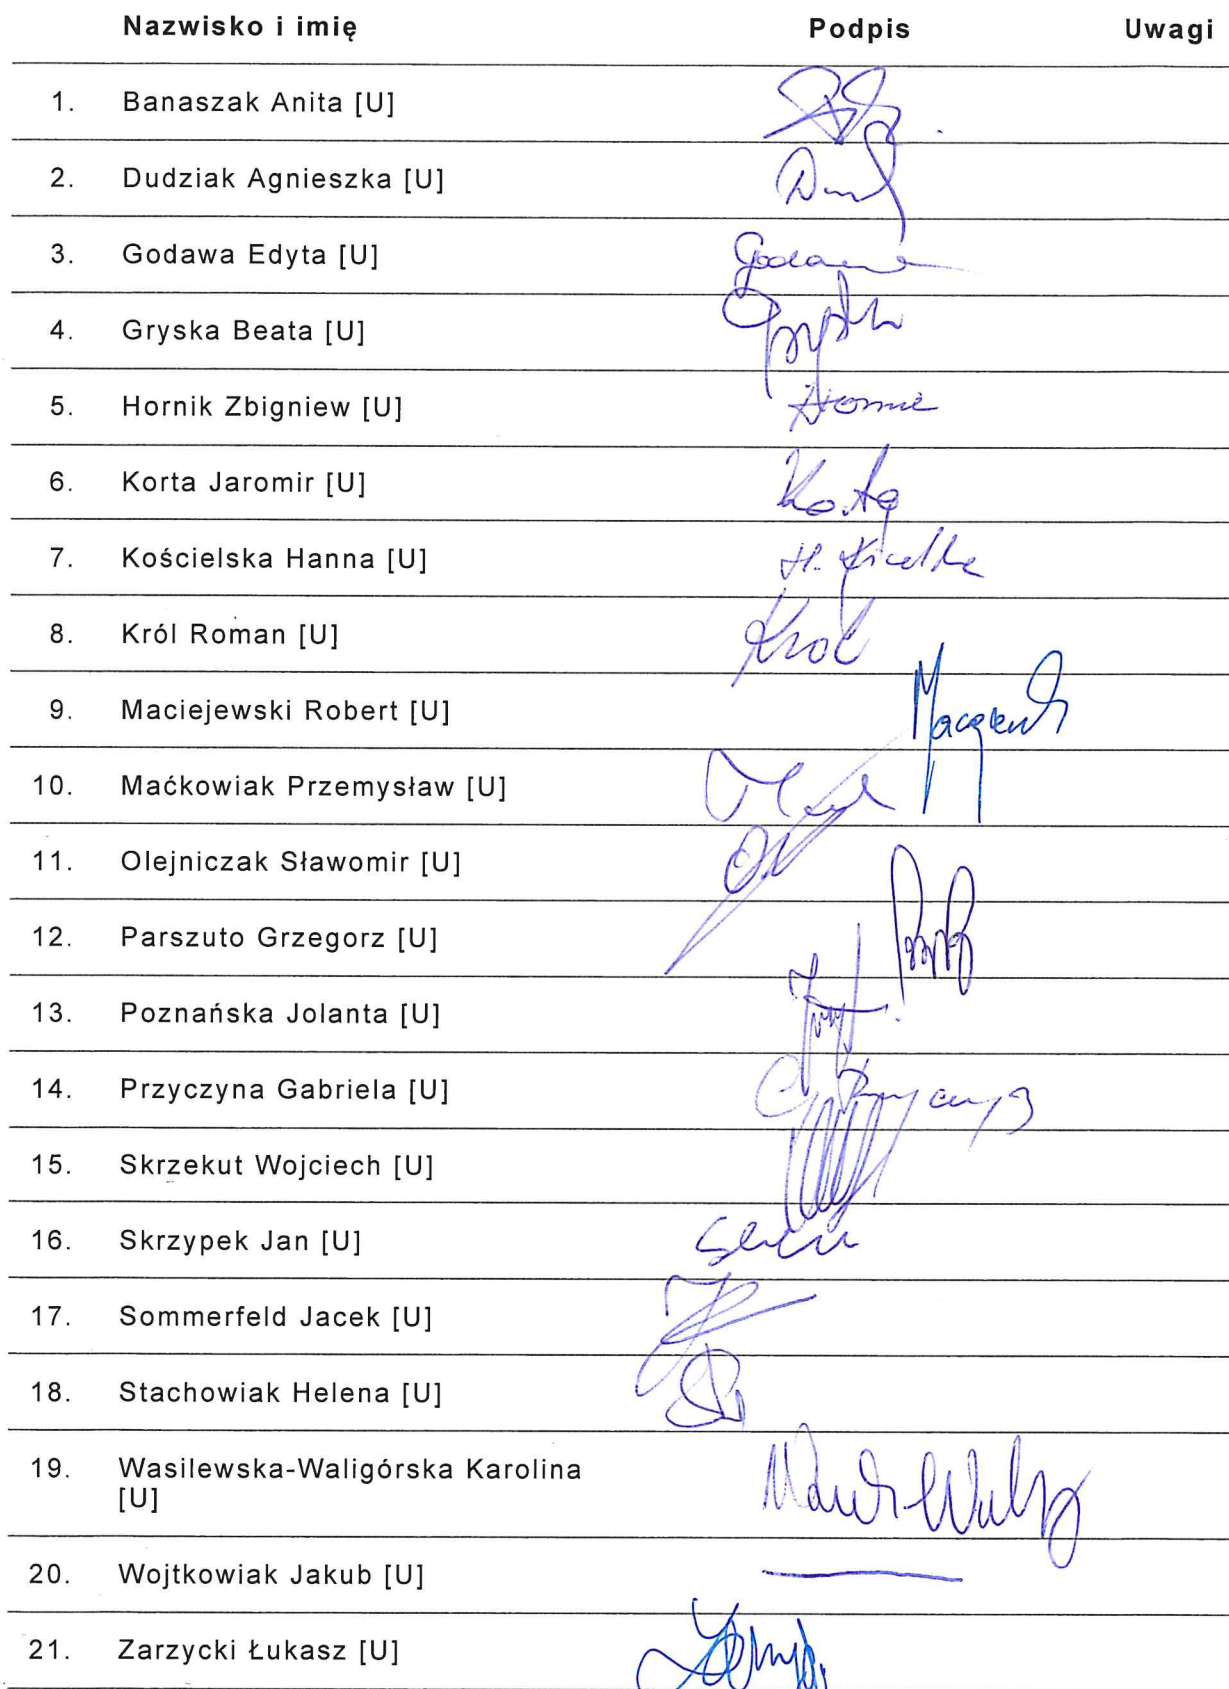 Nazwisko i imię Podpis Uwagi
1. Banaszak Anita [U]
2. Dudziak Agnieszka [U]
3. Godawa Edyta [U] Godawa
4. Gryska Beata [U]
5. Hornik Zbigniew [U]
6. Korta Jaromir [U] Korta
7. Kościelska Hanna [U] H.
8. Król Roman [U] Król
9. Maciejewski Robert [U]
10. Maćkowiak Przemysław [U]
11. Olejniczak Sławomir [U]
12. Parszuto Grzegorz [U]
13. Poznańska Jolanta [U]
14. Przyczyna Gabriela [U]
15. Skrzekut Wojciech [U]
16. Skrzypek Jan [U]
17. Sommerfeld Jacek [U]
18. Stachowiak Helena [U]
19. Wasilewska-Waligórska Karolina
[U]
20. Wojtkowiak Jakub [U]
21. Zarzycki Łukasz [U]